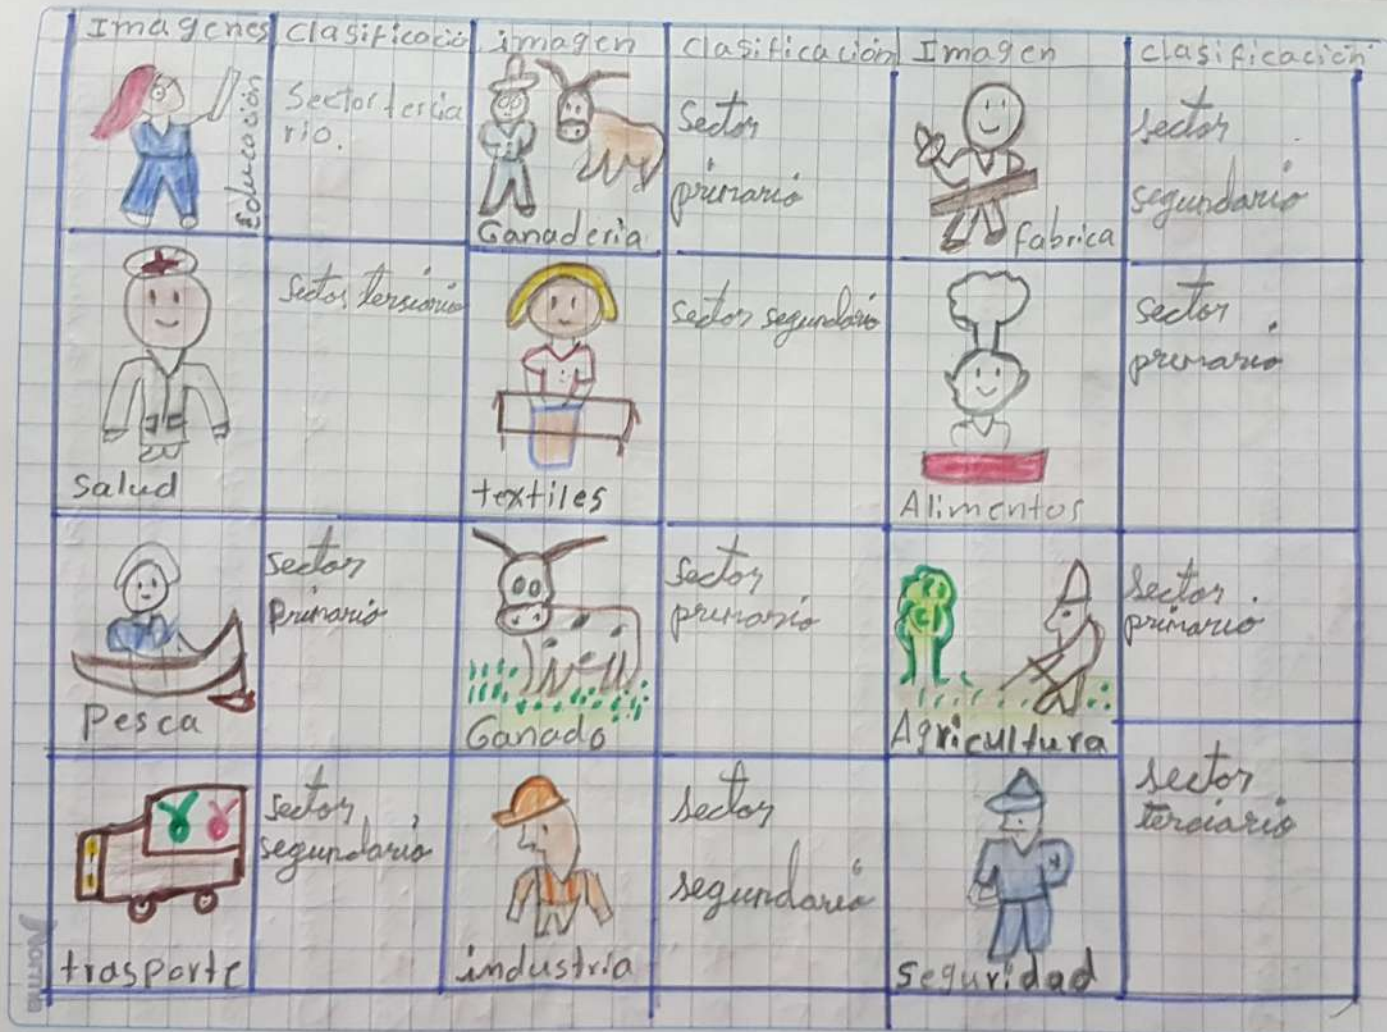 Imagenes clasificació imagen clasificación Imagen clasificación
Educación
Sector tercia
rio.
Ganaderia
sector
primario
fabrica
sector
segundario
salud
sector tersiario
textiles
sector segundario
Alimentos
sector
premario
Pesca
sector
primario
Ganado
sector
primario
Agricultura
sector.
primario
trasporte
sector
segundario
industria
sector
segundario
seguridad
sector
terciario
Norma